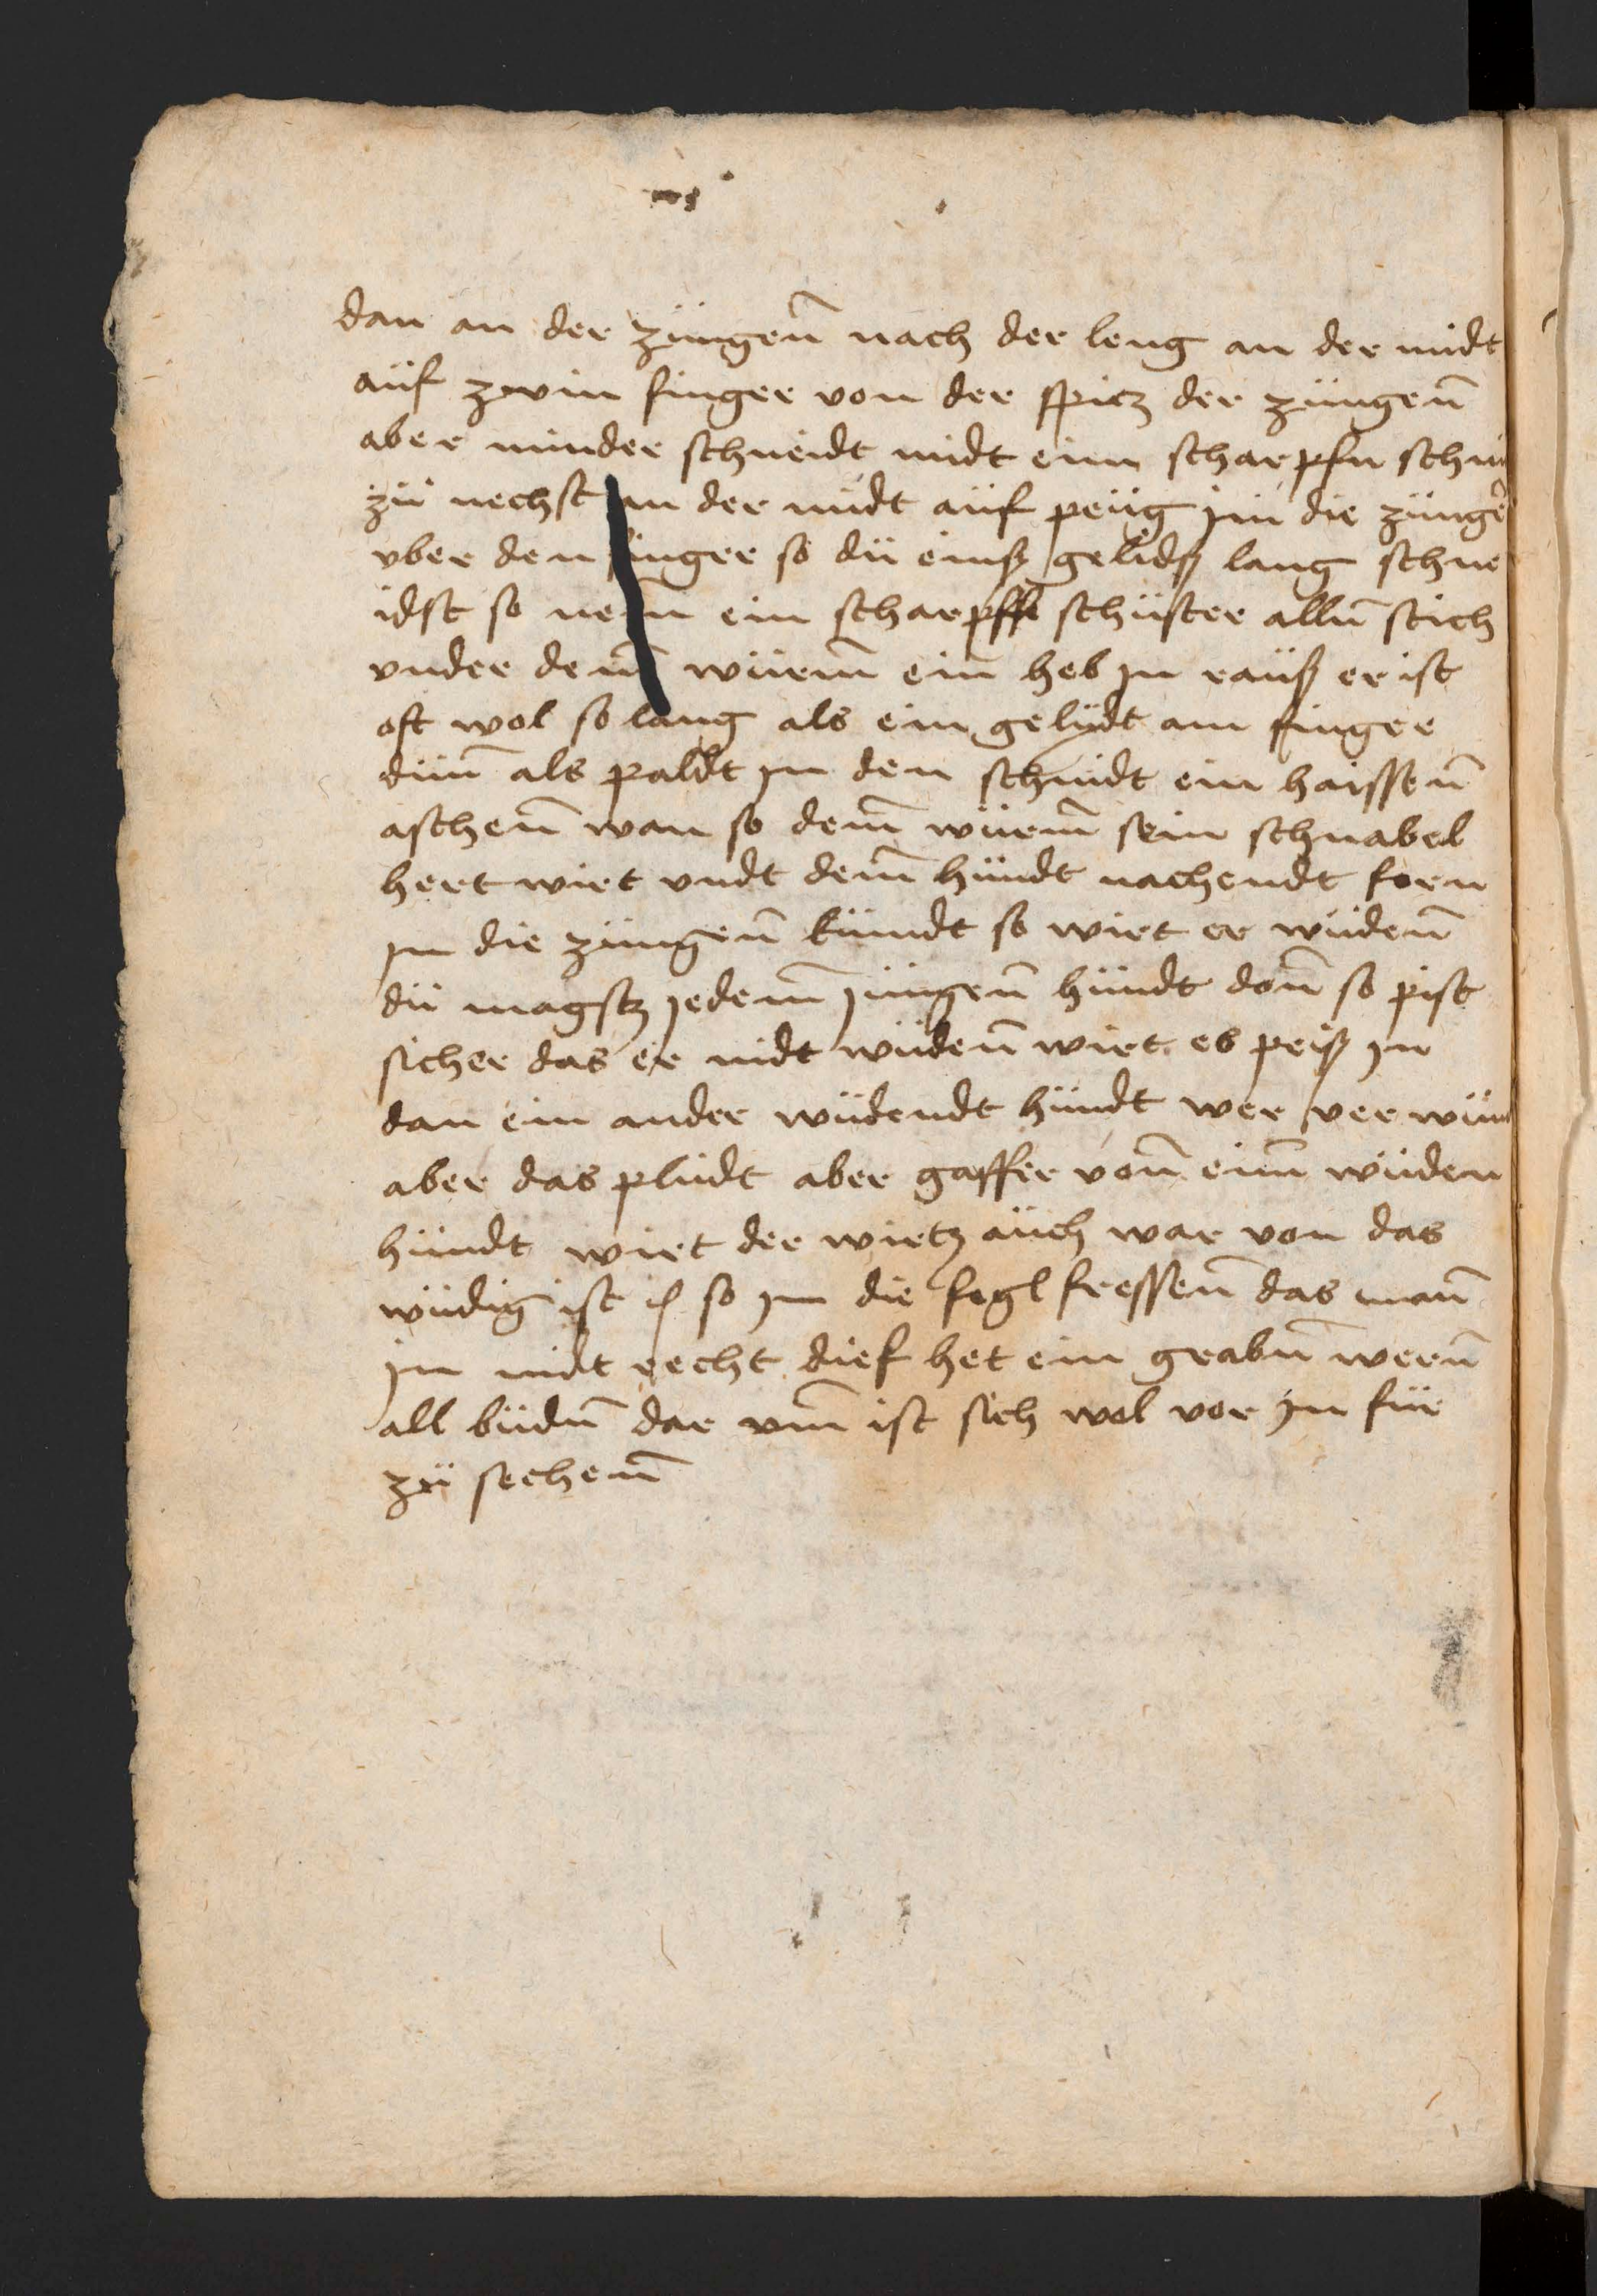 dan an der züngen̄ nach der leng an der midt
aüf zwin finger von der spicz der züngen̄
aber minder schneidt midt eim scharpfn
zü nechst in der midt aüf peüg jin die zünge
vber den finger so dü einß gelidß lang schne
idst so nem ein scharpffe schüster allen̄ stich
vnder dem̄ würm̄ ein heb jn raüß er ist
oft wol so lang als ein gelydt am finger
dün̄ als paldt jn den schnidt ein haissen̄
aschen̄ wan so dem̄ würm̄ sein schnabel
hert wirt vndt dem̄ hündt nachendt forn
jn die züngen̄ kümdt so wirt er wüden̄
dü magstz jedem̄ jüngen̄ hündt don̄ so pist
sicher das er nidt wüden̄ wirt es peiß jn
dan ein ander wüdendt hündt wer ver wün
aber das plüdt aber gaffer von̄ eim̄ wüden
hündt wirt der wirtz aüch war von das
wüdig ist so jm die fegl fressen̄ das man̄
jn nidt recht dief het ein grabn̄ wern̄
all büdn̄ dar vm̄ ist sich wol vor jn für
zü sechen̄